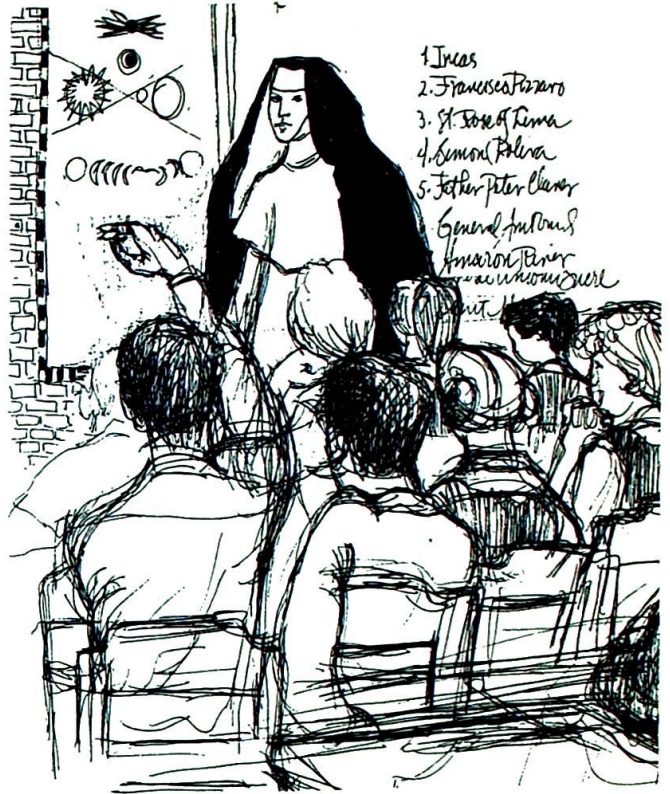 1. Incas
2. Francisco Pizzaro
3. St. Rose of Lima
4. Simon Boliva
5. Father Peter Claver
General
Amazon River